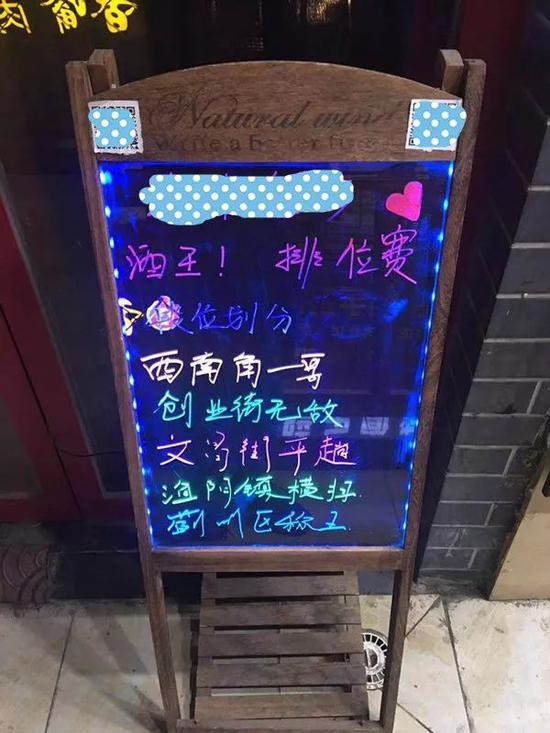 Natural wind
酒王! 排位赛
段位划分
西南角一哥
创业街无敌
文昌街平趟
渔阳镇横扫
蓟州区称王